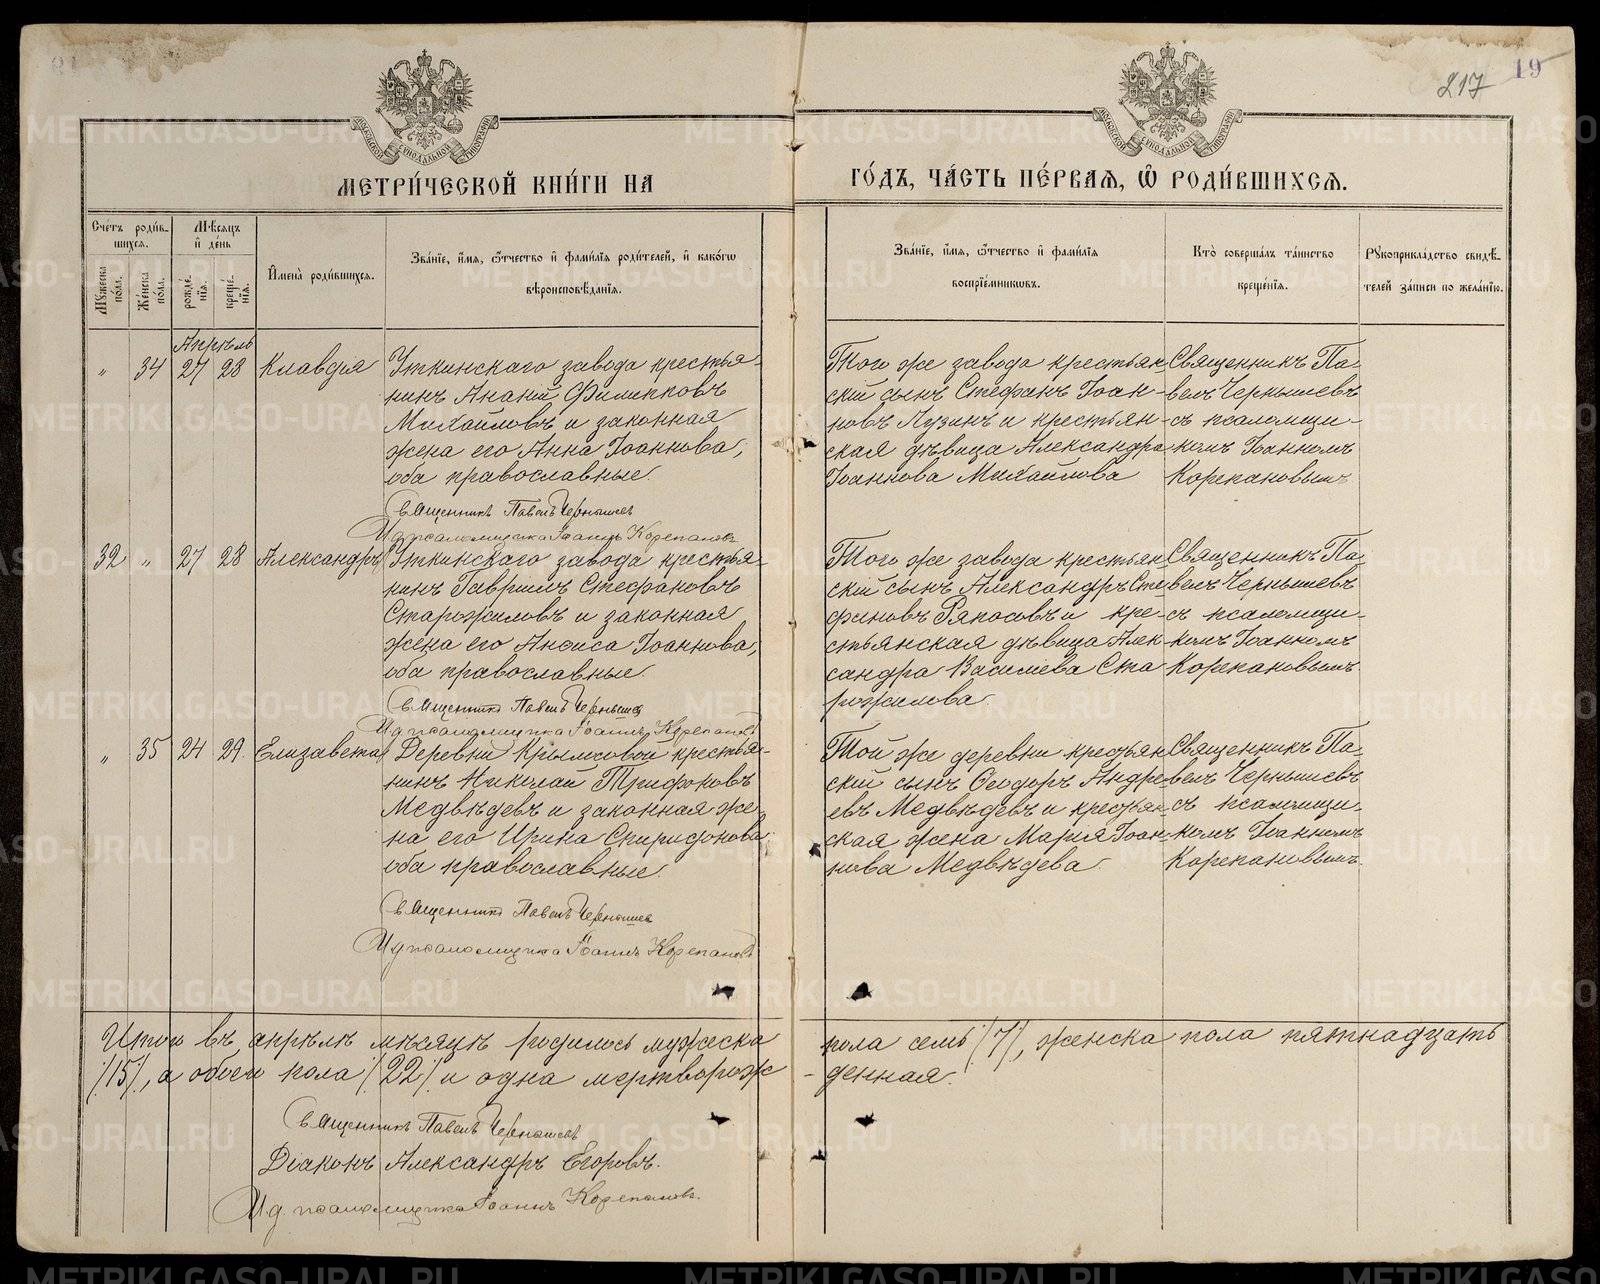 217 19
МЕТРИ́ЧЕСКОЙ КНИ́ГИ НА ГО́ДЪ, ЧА́СТЬ ПЕ́РВАѦ, Ѽ РОДИ́ВШИХСѦ.
Сче́тъ роди́в-
шихсѧ.
Мꙋ́жеска по́ла.
Же́нска по́ла.
Мѣ́сѧцъ
и҆ де́нь
рожде́-
нїѧ.
креще́-
нїѧ.
И҆мена̀ роди́вшихсѧ.
Зва́нїе, и҆́мѧ, ѻ҆́тчество и҆ фами́лїѧ роди́телей, и҆ како́гѡ
вѣроисповѣ́данїѧ.
Зва́нїе, и҆́мѧ, ѻ҆́тчество и҆ фами́лїѧ
воспрїе́мникѡвъ.
Кто̀ соверша́лъ та́инство
креще́нїѧ.
Рꙋкоприкла́дство свидѣ́-
телей за́писи по жела́нїю.
Апрѣль
„ 34 27 28 Клавдія
Уткинскаго завода крестья-
нинъ Ананій Филипповъ
Михайловъ и законная
жена его Анна Іоаннова,
оба православные.
Священникъ Павелъ Чернышев
И. д. псаломщика Іоаннъ Корепановъ
Того же завода крестьян-
скій сынъ Стефанъ Іоан-
новъ Пузинъ и крестьян-
ская дѣвица Александра
Іоаннова Михайлова
Священникъ Па-
велъ Чернышевъ
съ псаломщи-
комъ Іоанномъ
Корепановымъ
32 „ 27 28 Александръ
Уткинскаго завода крестья-
нинъ Гавріилъ Стефановъ
Старожиловъ и законная
жена его Анѳиса Іоаннова,
оба православные.
Священникъ Павелъ Чернышев
И. д. псаломщика Іоаннъ Корепановъ
Того же завода крестьян-
скій сынъ Александръ Сте-
фановъ Ряпосовъ и кре-
стьянская дѣвица Алек-
сандра Васильева Ста-
рожилова.
Священникъ Па-
велъ Чернышевъ
съ псаломщи-
комъ Іоанномъ
Корепановымъ.
„ 35 24 29. Елизавета
Деревни Крылосовой крестья-
нинъ Николай Трифоновъ
Медвѣдевъ и законная же-
на его Ирина Спиридонова
оба православные.
Священникъ Павелъ Чернышев
И. д. псаломщика Іоаннъ Корепановъ
Той же деревни крестьян-
скій сынъ Ѳеодоръ Андре-
евъ Медвѣдевъ и крестьян-
ская жена Марія Іоан-
нова Медвѣдева.
Священникъ Па-
велъ Чернышевъ
съ псаломщи-
комъ Іоанномъ
Корепановымъ.
Итого въ апрѣлѣ мѣсяцѣ родилось мужеска пола семь /7/, женска пола пятнадцать
/15/, а обоего пола /22/ и одна мертворож-денная.
Священникъ Павелъ Чернышевъ
Діаконъ Александръ Егоровъ.
И. д. псаломщика Іоаннъ Корепановъ.